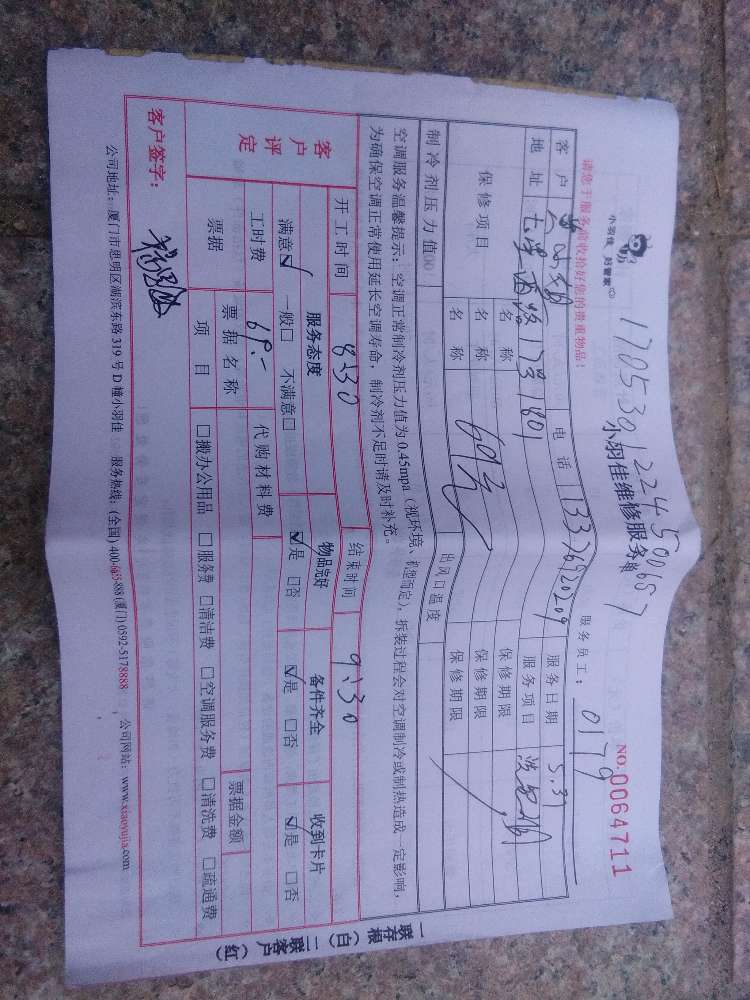 小羽佳 好管家
1705301224500657
小羽佳维修服务单
NO.0064711
请您于服务前收拾好您的贵重物品!
服务员工: 0179
客户 电话 13376920209 服务日期 5.31
地址 1801 服务项目
保修项目 名称 保修期限
名称 69元 保修期限
名称 保修期限
制冷剂压力值 出风口温度
空调服务温馨提示:空调正常制冷剂压力值为0.45mpa(视环境、机型而定),拆装过程会对空调制冷或制热造成一定影响,
为确保空调正常使用延长空调寿命,制冷剂不足时请及时补充。
开工时间 8:30 结束时间 9:30
客户评定 服务态度 物品完好 备件齐全 收到卡片
满意☑ 一般□ 不满意□ ☑是 □否 ☑是 □否 ☑是 □否
工时费 69.- 代购材料费
票据 票据名称 票据金额
项目 □搬办公用品 □服务费 □清洁费 □空调服务费 □清洗费 □疏通费
客户签字:
公司地址:厦门市思明区湖滨东路319号D幢小羽佳 服务热线:(全国)400-8655-888 (厦门)0592-5178888 公司网站:www.xiaoyujia.com
一联存根(白) 二联客户(红)